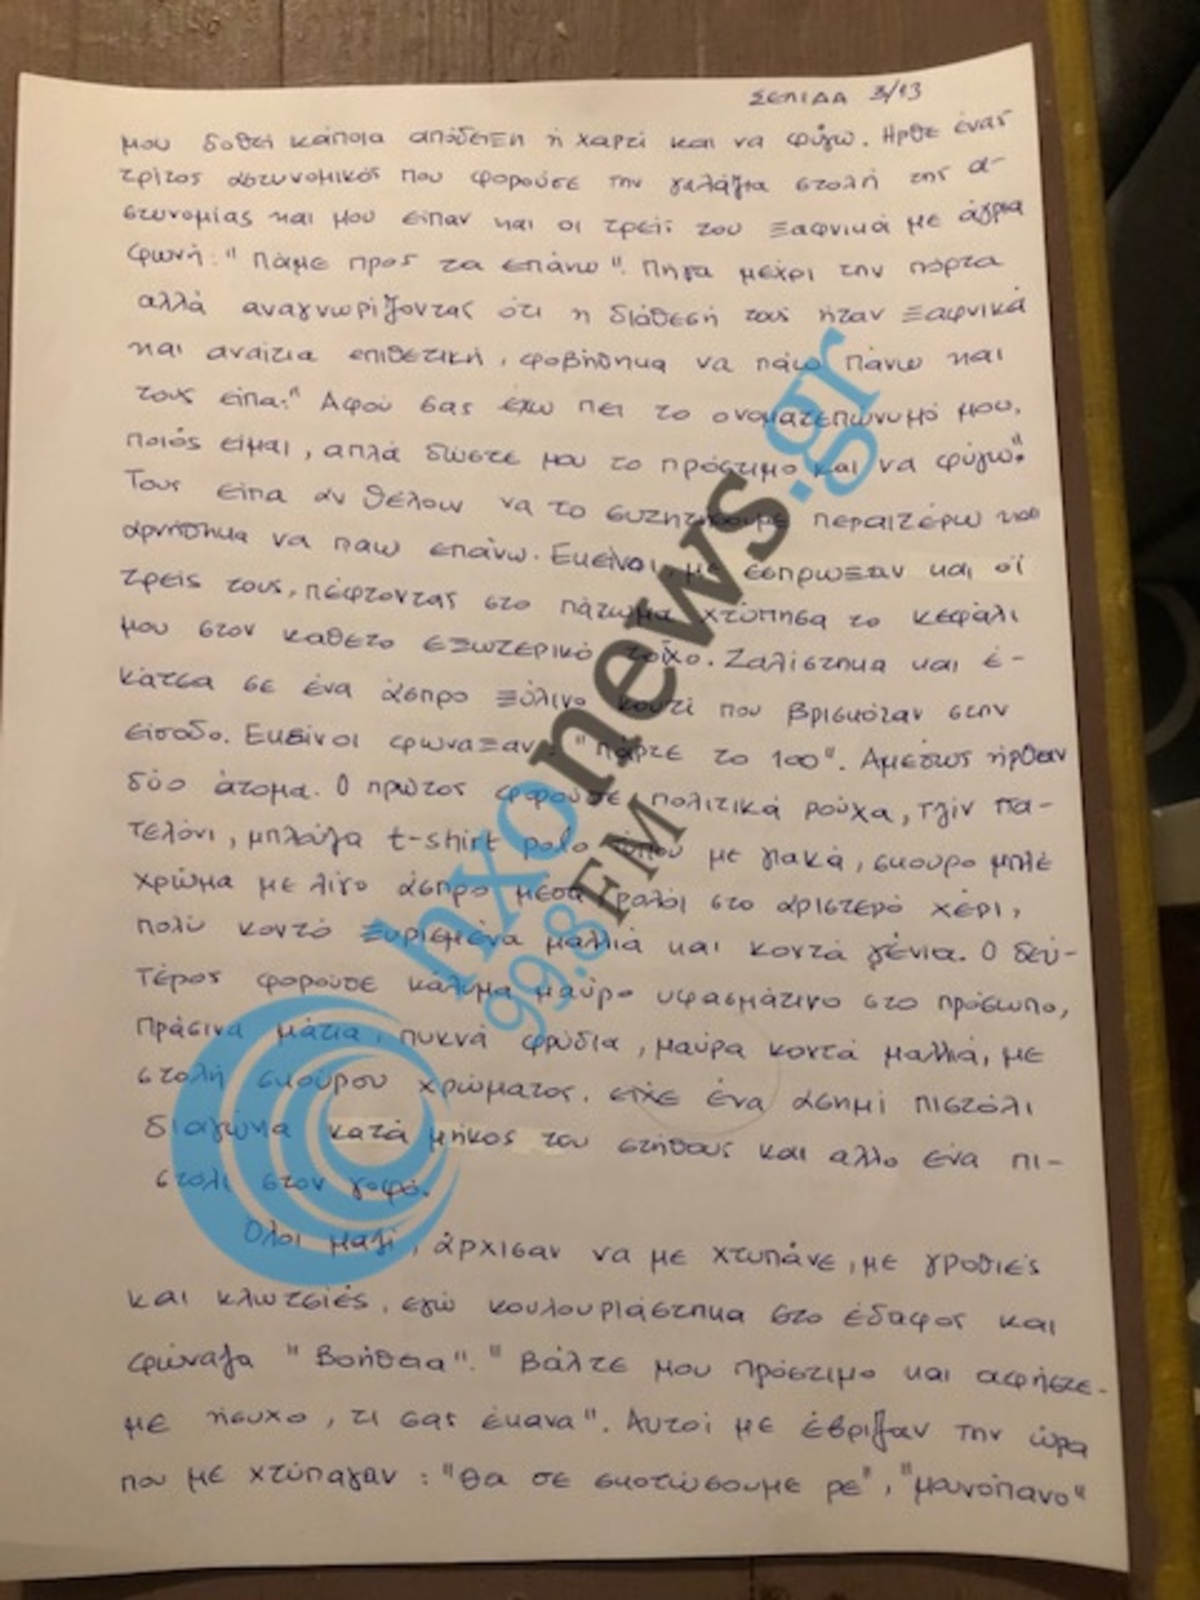 ΣΕΛΙΔΑ 3/13
μου δοθεί κάποια απόδειξη ή χαρτί και να φύγω. Ηρθε ένας
τρίτος αστυνομικός που φορούσε την γαλάζια στολή της α-
στυνομίας και μου είπαν και οι τρεις του ξαφνικά με άγρια
φωνή: " Πάμε προς τα επάνω". Πήγα μέχρι την πόρτα
αλλά αναγνωρίζοντας ότι η διάθεσή τους ήταν ξαφνικά
και αναίτια επιθετική, φοβήθηκα να πάω πάνω και
τους είπα: " Αφού σας έχω πει το ονοματεπώνυμό μου,
ποιός είμαι, απλά δώστε μου το πρόστιμο και να φύγω".
Τους είπα αν θέλουν να το συζητήσουμε περαιτέρω και
αρνήθηκα να παω επάνω. Εκείνοι, με έσπρωξαν και οί
τρείς τους, πέφτοντας στο πάτωμα χτύπησα το κεφάλι
μου στον καθετο εξωτερικό τοίχο. Ζαλίστηκα και έ-
κάτσα σε ένα άσπρο ξύλινο κουτί που βρισκόταν στην
είσοδο. Εκείνοι φωναξαν: "Πάρτε το 100". Αμέσως ήρθαν
δύο άτομα. Ο πρώτος φορούσε πολιτικά ρούχα, τζίν πα-
τελόνι, μπλούζα t-shirt polo τύπου με γιακά, σκουρο μπλέ
χρώμα με λίγο άσπρο μέσα, ρολόι στο αριστερό χέρι,
πολύ κοντό ξυρισμένα μαλλιά και κοντά γένια. Ο δεύ-
τέρος φορούσε κάλυμα μαύρο υφασμάτινο στο πρόσωπο,
πράσινα μάτια, πυκνά φρύδια, μαύρα κοντά μαλλιά, με
στολή σκούρου χρώματος. είχε ένα ασημί πιστόλι
διαγώνια κατά μήκος του στήθους και αλλο ένα πι-
στολι στον γοφό.
Όλοι μαζί, άρχισαν να με χτυπάνε, με γροθιές
και κλωτσιές, εγώ κουλουριάστηκα στο έδαφος και
φώναζα " Βοήθεια". " Βάλτε μου πρόστιμο και αφήστε-
με ήσυχο, τι σας έκανα". Αυτοί με έβριζαν την ώρα
που με χτύπαγαν: "Θα σε σκοτώσουμε ρε", "μουνόπανο"
hxonews.gr
99.8 FM